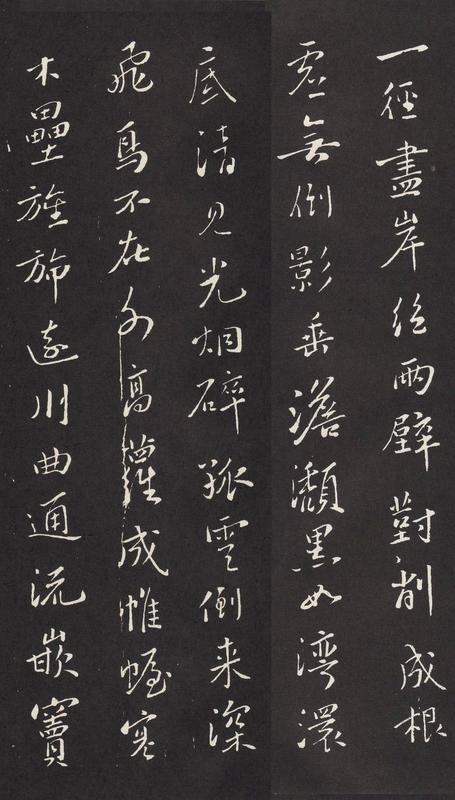 一徑盡岸絕兩壁對削成根
虛無倒影垂澹瀩黑如灣澴
底清見光烱碎孤雲倒来深
飛鳥不在外高蘿成帷幄寒
木壘旌旆遠川曲通流嵌竇